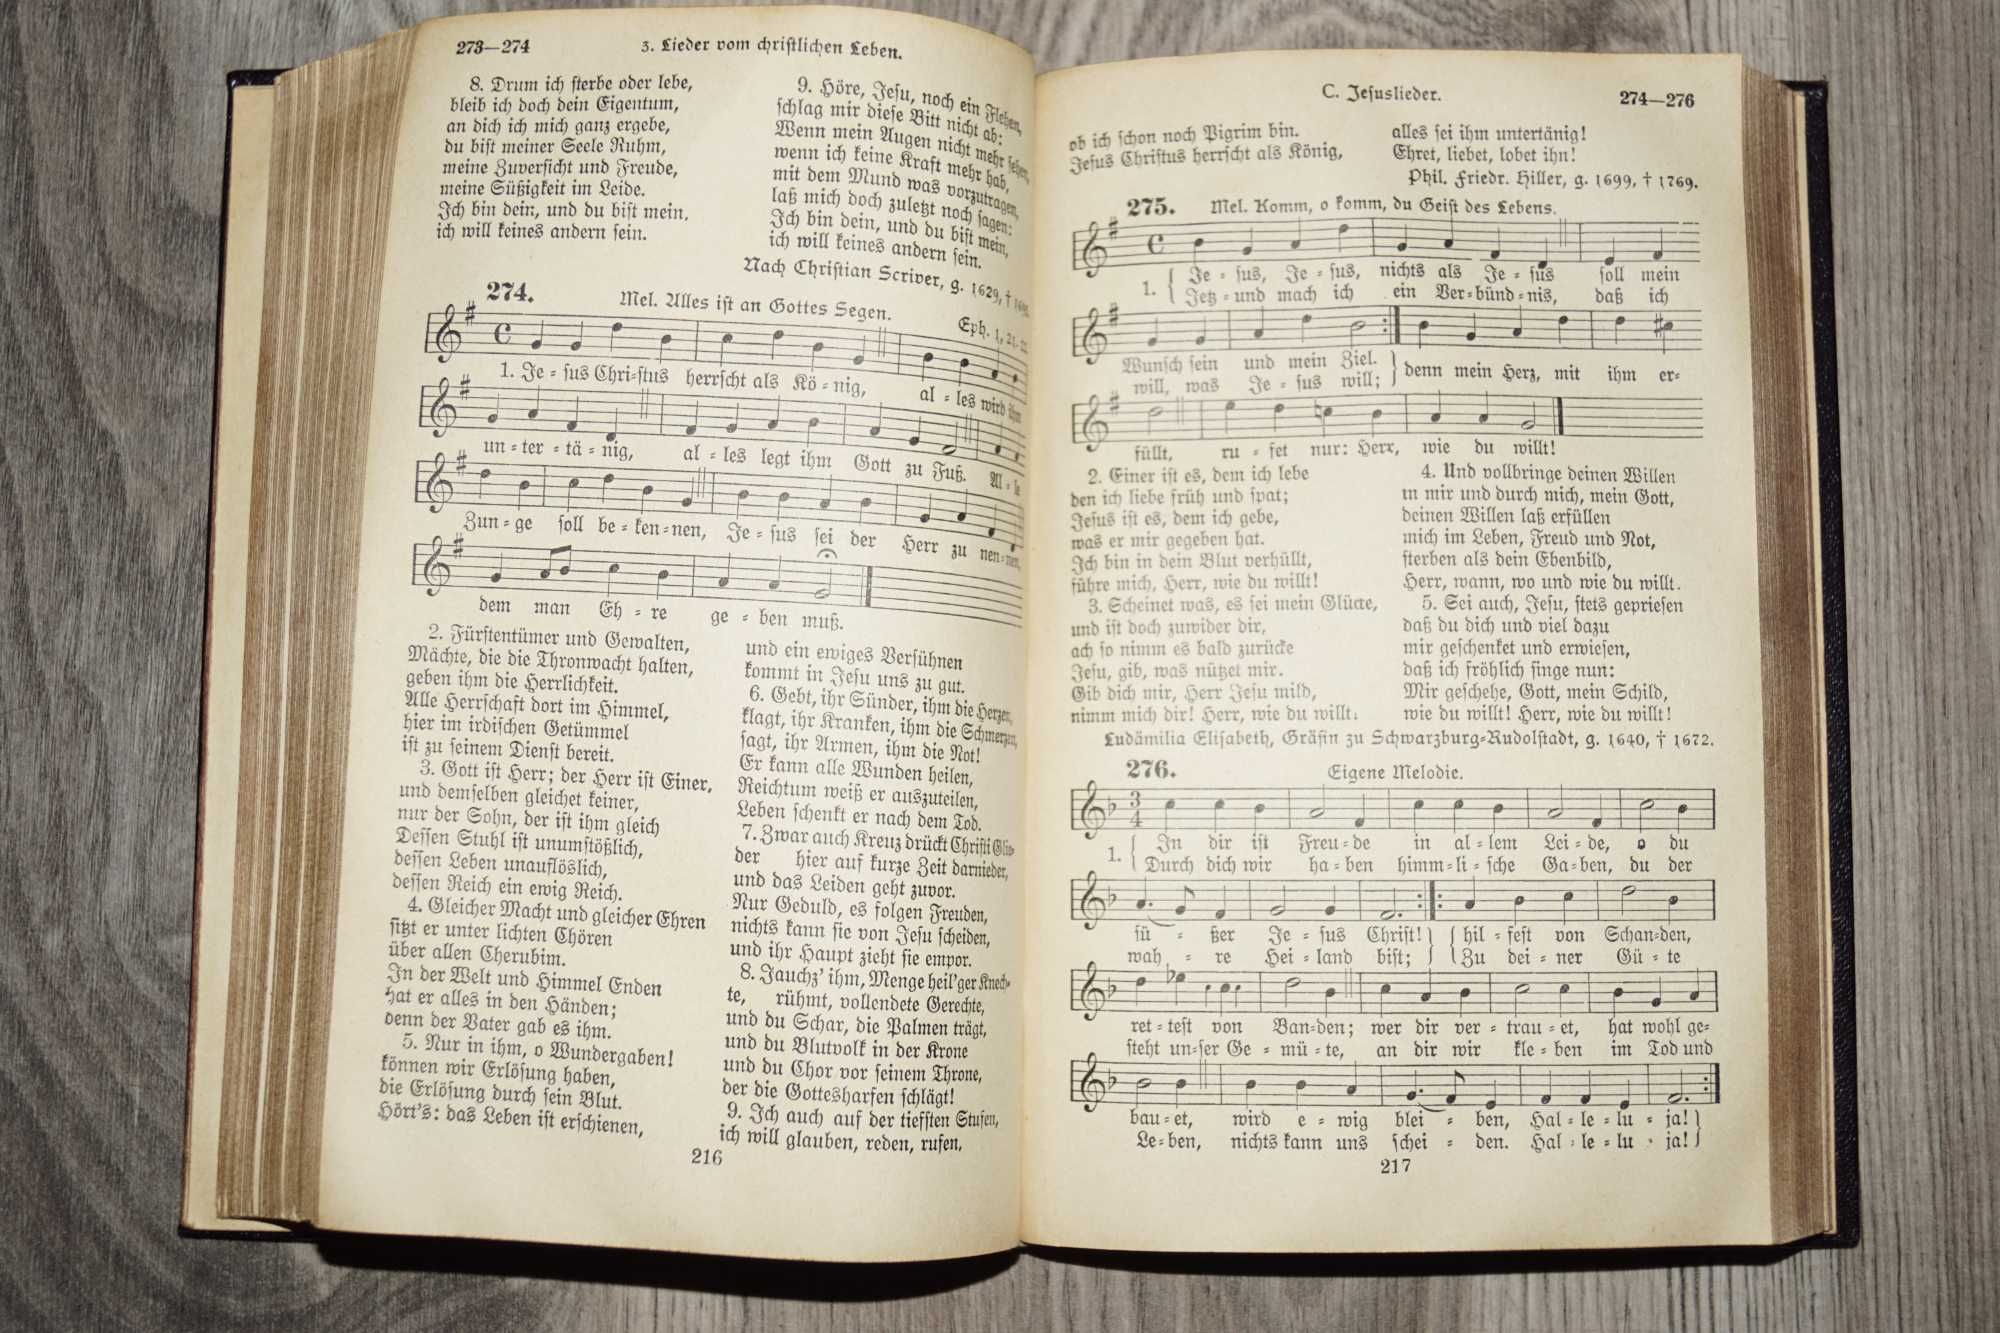 273—274
3. Lieder vom christlichen Leben.
8. Drum ich sterbe oder lebe,
bleib ich doch dein Eigentum,
an dich ich mich ganz ergebe,
du bist meiner Seele Ruhm,
meine Zuversicht und Freude,
meine Süßigkeit im Leide.
Ich bin dein, und du bist mein,
ich will keines andern sein.
9. Höre, Jesu, noch ein Flehen,
schlag mir diese Bitt nicht ab:
Wenn mein Augen nicht mehr sehen,
wenn ich keine Kraft mehr hab,
mit dem Mund was vorzutragen,
laß mich doch zuletzt noch sagen:
Ich bin dein, und du bist mein,
ich will keines andern sein.
Nach Christian Scriver, g. 1629, †
274.
Mel. Alles ist an Gottes Segen.
Eph. 1, 21-22
1. Je-sus Chri-stus herrscht als Kö-nig, al-les wird ihm
un-ter-tä-nig, al-les legt ihm Gott zu Fuß. Al-le
Zun-ge soll be-ken-nen, Je-sus sei der Herr zu nen-nen,
dem man Eh-re ge-ben muß.
2. Fürstentümer und Gewalten,
Mächte, die die Thronwacht halten,
geben ihm die Herrlichkeit.
Alle Herrschaft dort im Himmel,
hier im irdischen Getümmel
ist zu seinem Dienst bereit.
3. Gott ist Herr; der Herr ist Einer,
und demselben gleichet keiner,
nur der Sohn, der ist ihm gleich
Dessen Stuhl ist unumstößlich,
dessen Leben unauflöslich,
dessen Reich ein ewig Reich.
4. Gleicher Macht und gleicher Ehren
sitzt er unter lichten Chören
über allen Cherubim.
In der Welt und Himmel Enden
hat er alles in den Händen;
denn der Vater gab es ihm.
5. Nur in ihm, o Wundergaben!
können wir Erlösung haben,
die Erlösung durch sein Blut.
Hört's: das Leben ist erschienen,
und ein ewiges Versühnen
kommt in Jesu uns zu gut.
6. Gebt, ihr Sünder, ihm die Herzen,
klagt, ihr Kranken, ihm die Schmerzen,
sagt, ihr Armen, ihm die Not!
Er kann alle Wunden heilen,
Reichtum weiß er auszuteilen,
Leben schenkt er nach dem Tod.
7. Zwar auch Kreuz drückt Christi Glie-
der hier auf kurze Zeit darnieder,
und das Leiden geht zuvor.
Nur Geduld, es folgen Freuden,
nichts kann sie von Jesu scheiden,
und ihr Haupt zieht sie empor.
8. Jauchz' ihm, Menge heil'ger Knech-
te, rühmt, vollendete Gerechte,
und du Schar, die Palmen trägt,
und du Blutvolk in der Krone
und du Chor vor seinem Throne,
der die Gottesharfen schlägt!
9. Ich auch auf der tiefsten Stufen,
ich will glauben, reden, rufen,
216
C. Jesuslieder.
274—276
ob ich schon noch Pigrim bin.
Jesus Christus herrscht als König,
alles sei ihm untertänig!
Ehret, liebet, lobet ihn!
Phil. Friedr. Hiller, g. 1699, † 1769.
275.
Mel. Komm, o komm, du Geist des Lebens.
1. Je-sus, Je-sus, nichts als Je-sus soll mein
Jetz-und mach ich ein Ver-bünd-nis, daß ich
Wunsch sein und mein Ziel. denn mein Herz, mit ihm er-
will, was Je-sus will;
füllt, ru-fet nur: Herr, wie du willt!
2. Einer ist es, dem ich lebe
den ich liebe früh und spat;
Jesus ist es, dem ich gebe,
was er mir gegeben hat.
Ich bin in dein Blut verhüllt,
führe mich, Herr, wie du willt!
3. Scheinet was, es sei mein Glücke,
und ist doch zuwider dir,
ach so nimm es bald zurücke
Jesu, gib, was nützet mir.
Gib dich mir, Herr Jesu mild,
nimm mich dir! Herr, wie du willt.
4. Und vollbringe deinen Willen
in mir und durch mich, mein Gott,
deinen Willen laß erfüllen
mich im Leben, Freud und Not,
sterben als dein Ebenbild,
Herr, wann, wo und wie du willt.
5. Sei auch, Jesu, stets gepriesen
daß du dich und viel dazu
mir geschenket und erwiesen,
daß ich fröhlich singe nun:
Mir geschehe, Gott, mein Schild,
wie du willt! Herr, wie du willt!
Ludämilia Elisabeth, Gräfin zu Schwarzburg-Rudolstadt, g. 1640, † 1672.
276.
Eigene Melodie.
1. In dir ist Freu-de in al-lem Lei-de, o du
Durch dich wir ha-ben himm-li-sche Ga-ben, du der
sü-ßer Je-sus Christ! hil-fest von Schan-den,
wah-re Hei-land bist; Zu dei-ner Gü-te
ret-test von Ban-den; wer dir ver-trau-et, hat wohl ge-
steht un-ser Ge-mü-te, an dir wir kle-ben im Tod und
bau-et, wird e-wig blei-ben, Hal-le-lu-ja!
Le-ben, nichts kann uns schei-den. Hal-le-lu-ja!
217